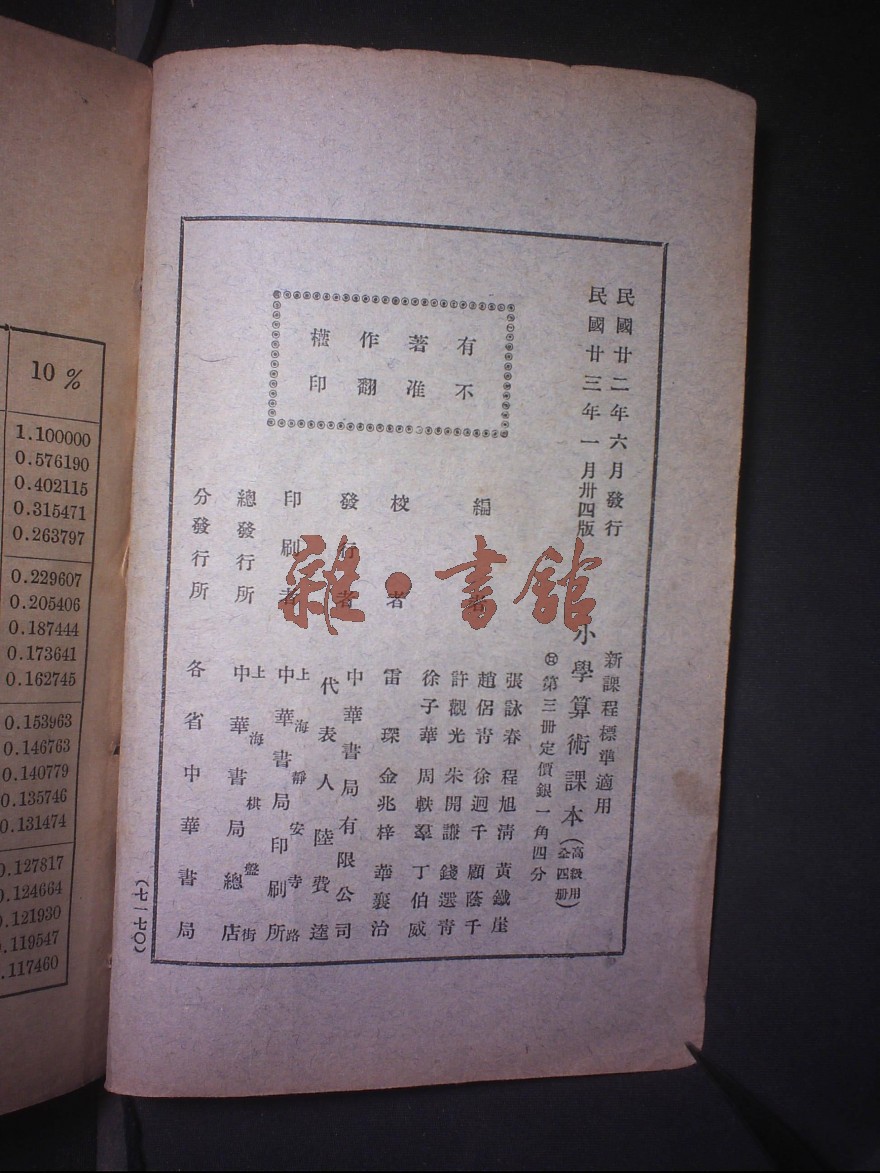 民國廿二年六月發行
民國廿三年一月卅四版
新課程標準適用
小學算術課本（高級用全四冊）
第三冊定價銀一角四分
有著作權
不准翻印
編著者
張詠春 程旭清 黃鐵崖
趙侶青 徐迥千 顧蔭千
許觀光 朱開謙 錢選青
徐子華 周軼羣 丁伯威
校者
雷琛 金兆梓 華襄治
發行者
中華書局有限公司
代表人陸費逵
印刷者
上海靜安寺路
中華書局印刷所
總發行所
上海棋盤街
中華書局總店
分發行所
各省中華書局
（七一七〇）
雜·書館
10 %
1.100000
0.576190
0.402115
0.315471
0.263797
0.229607
0.205406
0.187444
0.173641
0.162745
0.153963
0.146763
0.140779
0.135746
0.131474
0.127817
0.124664
0.121930
.119547
.117460